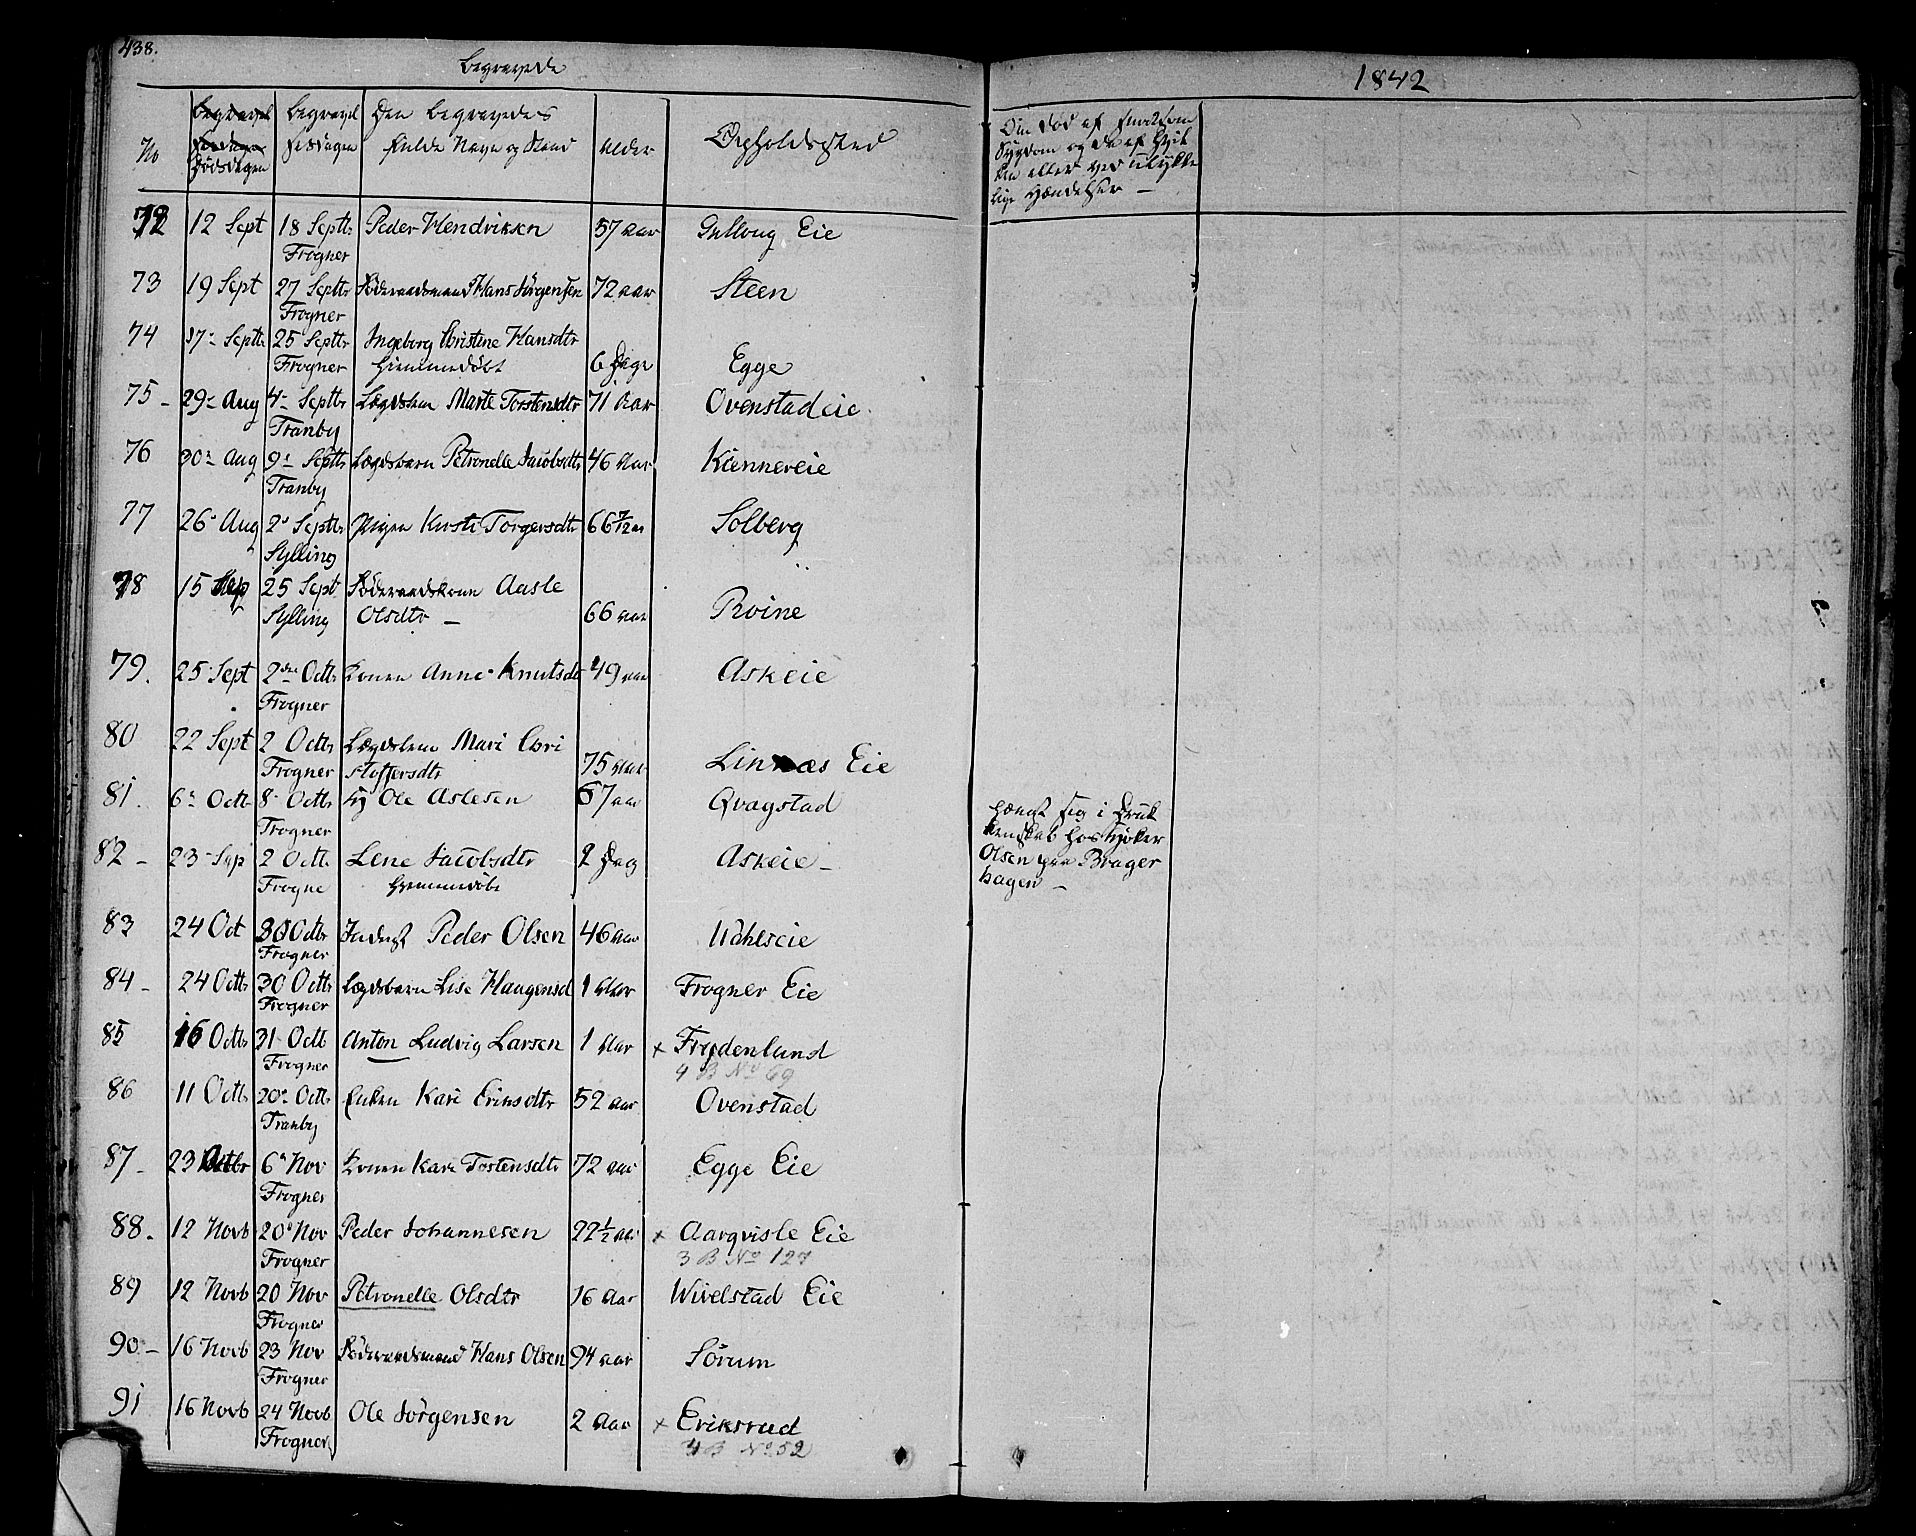 438.
Begravede
1842
No
Dødsdagen
Begravel
sesdagen
Den Begravedes
fulde Navn og Stand
Alder
Opholdssted
Om død af smitsom
Sygdom og da af hvil
ken eller ved ulykke
lige Hændelser —
72 12 Sept 18 Septbr Peder Hendriksen 57 aar Gullaug Eie
Frogner
73 19 Sept 27 Septbr Føderaadsmand Hans Jörgensen 72 aar Steen
Frogner
74 17de Septbr 25 Septbr Ingeborg Christine Hansdtr
Frogner Hjemmedøbt 6 Dage Egge
75 - 29de Aug 4de Septbr Lægdslem Marte Torstensdtr 71 Aar Ovenstadeie
Tranby
76 30de Aug 9de Septbr Lægdsbarn Petronelle Jacobsdtr 46 Aar Kiennereie
Tranby
77 26de Aug 2de Septbr Pigen Kirsti Torgersdtr 66 7/12 aar Solberg
Sylling
78 15 Sep 25 Sept Föderaadskone Aasle
Sylling Olsdtr — 66 aar Proine
79. 25 Sept 2den Octbr Konen Anne Knutsdtr 49 aar Askeie
Frogner
80 22 Sept 2 Octbr Lægdslem Mari Chri
Frogner stoffersdtr 75 Aar Linnæs Eie
81. 6te Octbr 8 Octbr Ole Aslesen 67 aar Qvagstad
Frogner
hængt sig i Druk
kenskab hos Høker
Olsen paa Brager
hagen —
82 - 23 Sep 2 Octbr Lene Jacobsdtr 2 Dag Askeie —
Frogne Hjemmedøbt
83 24 Oct 30 Octbr Inderst Peder Olsen 46 aar Wahlseie
Frogner
84 - 24 Octbr 30 Octbr Lægdsbarn Lise Haugensd 1 Aar Frogner Eie
Frogner
85 16 Octbr 31 Octb Anton Ludvig Larsen 1 Aar x Frydenlund
Frogner 4 B No 69
86 11 Octbr 20de Octbr Enken Kari Eriksdtr 52 aar Ovenstad
Tranby
87 - 23 Octbr 6te Nov Konen Kari Tostensdtr 72 aar Egge Eie
Frogner
88. 12 Novb 20de Nov Peder Johannesen 22 1/2 aar x Aarqvisle Eie
Frogner 3 B No 127
89 12 Novb 20 Nov Petronelle Olsdtr 16 Aar Wivelstad Eie
Frogner
90 - 16 Novb 23 Nov Föderaadsmand Hans Olsen 94 aar Sörum
Frogner
91 16 Novb 24 Novb Ole Jörgensen 2 Aar x Eriksrud
Frogner 4 B No 52